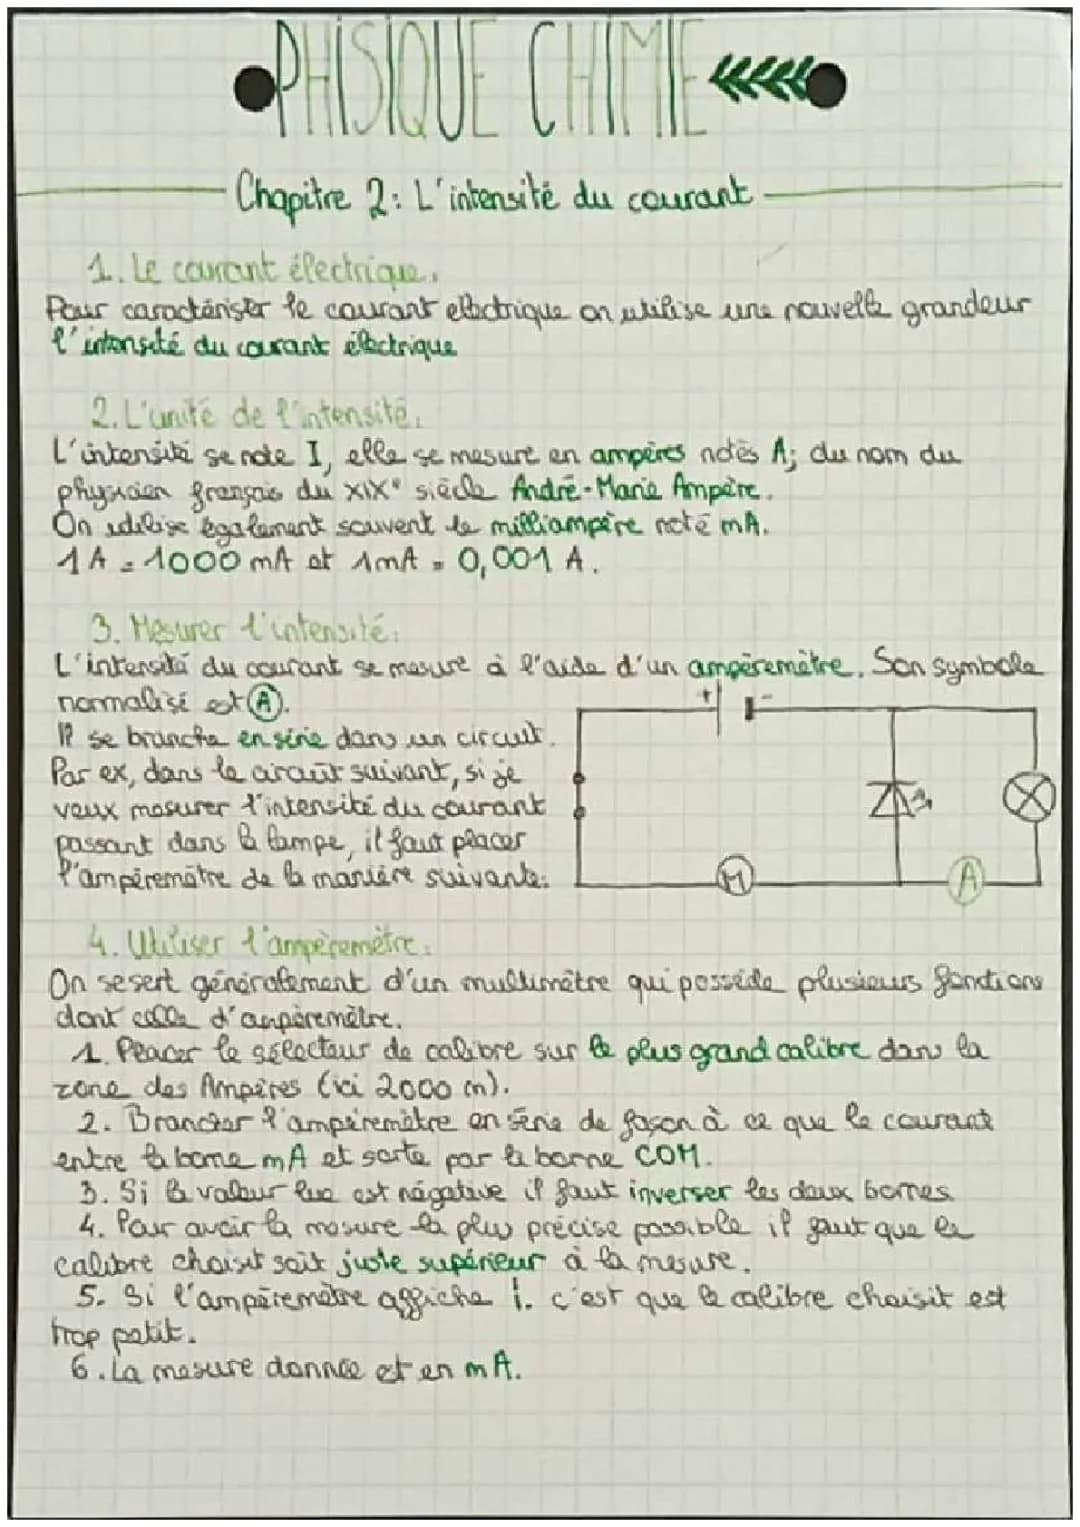 PHISIQUE CHIMIE
Chapitre 2: L'intensité du courant
1. Le courant électrique.
Pour caractériser le courant electrique on utilise une nouvelle grandeur
l'intensité du courant électrique
2. L'unité de l'intensité.
L'intensité se note I, elle se mesure en ampères notés A; du nom du
physicien français du XIXe siècle André-Marie Ampère.
On utilise également souvent le milliampère noté mA.
1 A = 1000 mA et 1mA = 0,001 A.
3. Mesurer l'intensité:
L'intensité du courant se mesure à l'aide d'un ampèremètre. Son symbole
normalisé est A.
Il se branche en série dans un circuit.
Par ex, dans le circuit suivant, si je
veux mesurer l'intensité du courant
passant dans la lampe, il faut placer
l'ampèremètre de la manière suivante:
+ -
M
A
4. Utiliser l'ampèremètre:
On se sert généralement d'un multimètre qui possède plusieurs fonctions
dont celle d'ampèremètre.
1. Placer le sélecteur de calibre sur le plus grand calibre dans la
zone des Ampères (ici 2000 m).
2. Brancher l'ampèremètre en série de façon à ce que le courant
entre la borne mA et sorte par la borne COM.
3. Si la valeur lue est négative il faut inverser les deux bornes
4. Pour avoir la mesure la plus précise possible il faut que le
calibre choisit soit juste supérieur à la mesure.
5. Si l'ampèremètre affiche 1. c'est que le calibre choisit est
trop petit.
6. La mesure donnée et en mA.